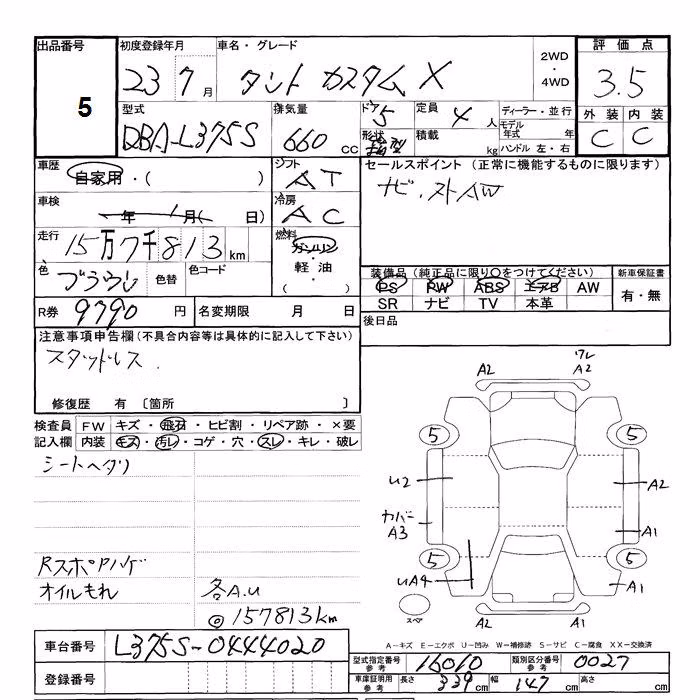 出品番号 初度登録年月 車名・グレード 2WD・4WD 評価点
5 23 7月 タント カスタム X 3.5
型式 排気量 ドア 5 定員 4人 ディーラー・並行 外装 内装
DBA-L375S 660cc 形状 箱型 積載 kg モデル年式 年 C C
ハンドル 左・右
車歴 自家用・( ) シフト AT セールスポイント (正常に機能するものに限ります)
車検 年 月( 日) 冷房 AC ナビ、ストAW
走行 15万7千813km 燃料 ガソリン・軽油・( )
色 ブラウン 色替 色コード 装備品(純正品に限り○をつけてください) 新車保証書
PS PW ABS エアB AW 有・無
R券 9790円 名変期限 月 日 SR ナビ TV 本革
後日品
注意事項申告欄(不具合内容等は具体的に記入して下さい)
スタッドレス
修復歴 有 〔箇所 〕
検査員 FW キズ・飛石・ヒビ割・リペア跡・×要
記入欄 内装 キズ・汚レ・コゲ・穴・スレ・キレ・破レ
シートヘタリ
Rスポロハゲ
オイルもれ 各A.U
◎157813km
A2 ワレ A2
5 5
U2 A2
カバー A3 A1
5 5
UA4 A1
スペア A2 A1
A-キズ E-エクボ U-凹み W-補修跡 S-サビ C-腐食 XX-交換済
車台番号 L375S-0444020 型式指定番号 参考 16010 類別区分番号 参考 0027
登録番号 車庫証明用 参考 長さ 339cm 幅 147cm 高さ cm